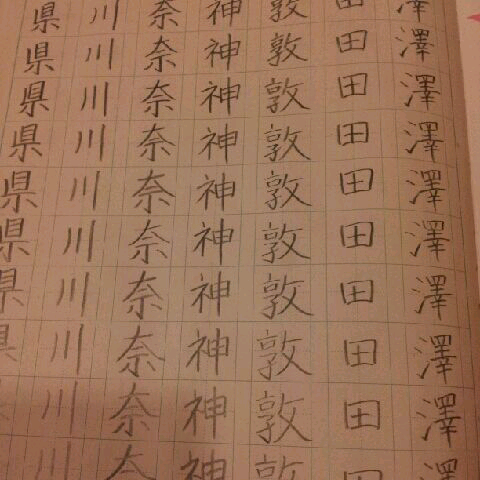 澤澤澤澤澤澤澤澤澤澤
田田田田田田田田田田
敦敦敦敦敦敦敦敦敦敦
神神神神神神神神神神
奈奈奈奈奈奈奈奈奈奈
川川川川川川川川川川
県県県県県県県県